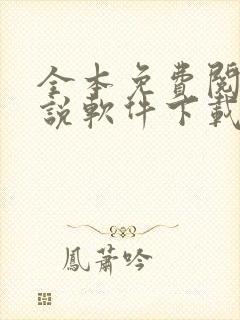 全本免費閱
說軟件下載
鳳蕭吟